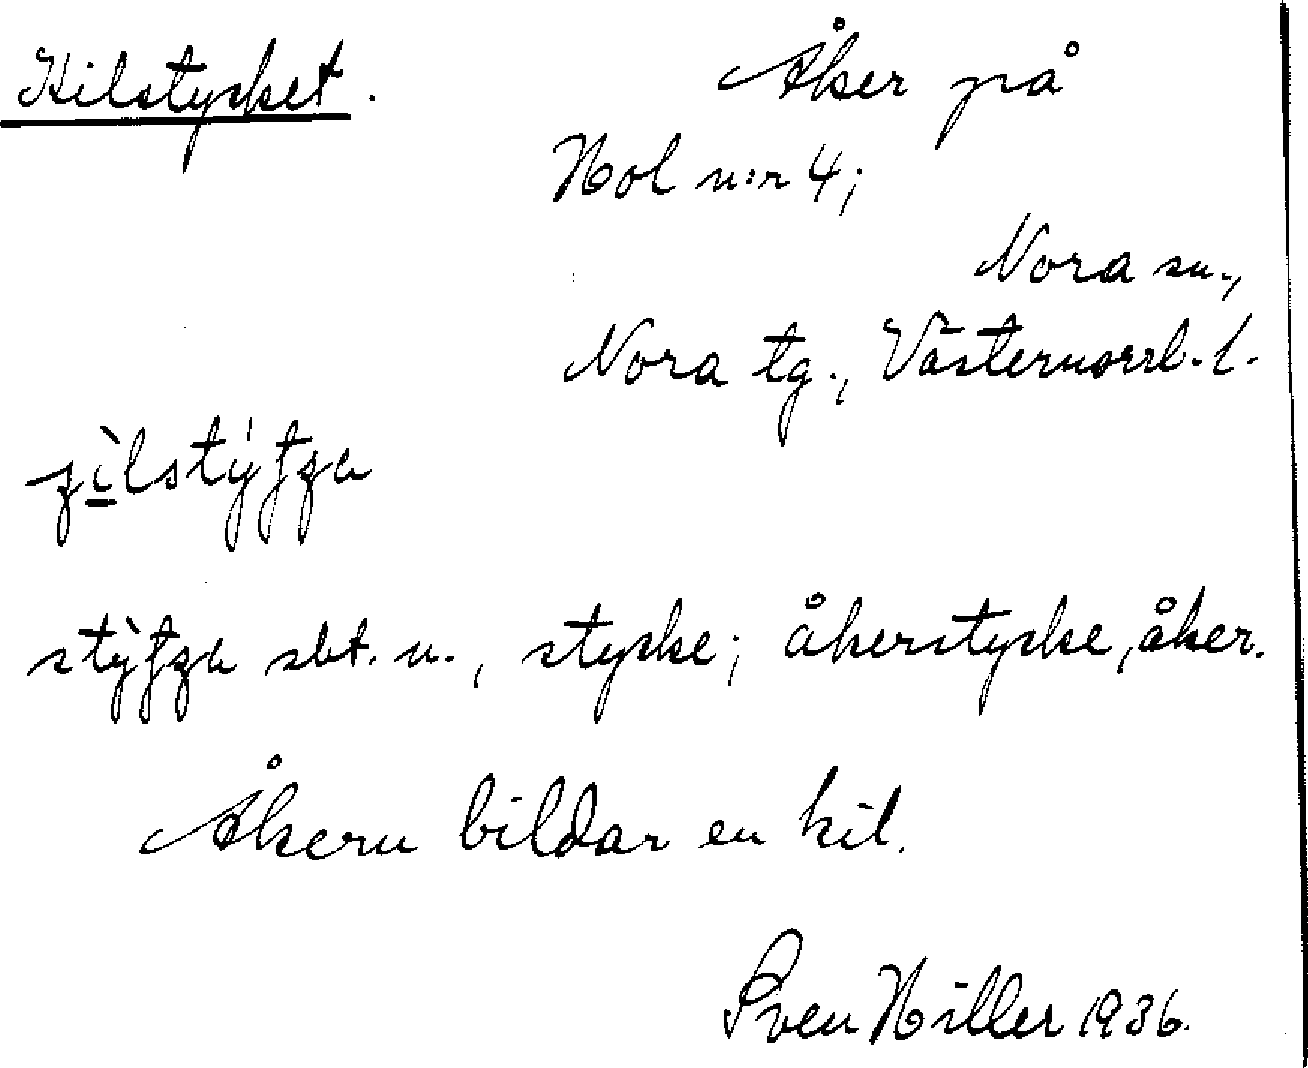 Kilstycket.
Åker på
Hol n:r 4;
Nora sn.,
Nora tg., Västernorrl. l.
sbt. n., stycke; åkerstycke, åker.
Åkern bildar en kil.
Sven Hiller 1936.